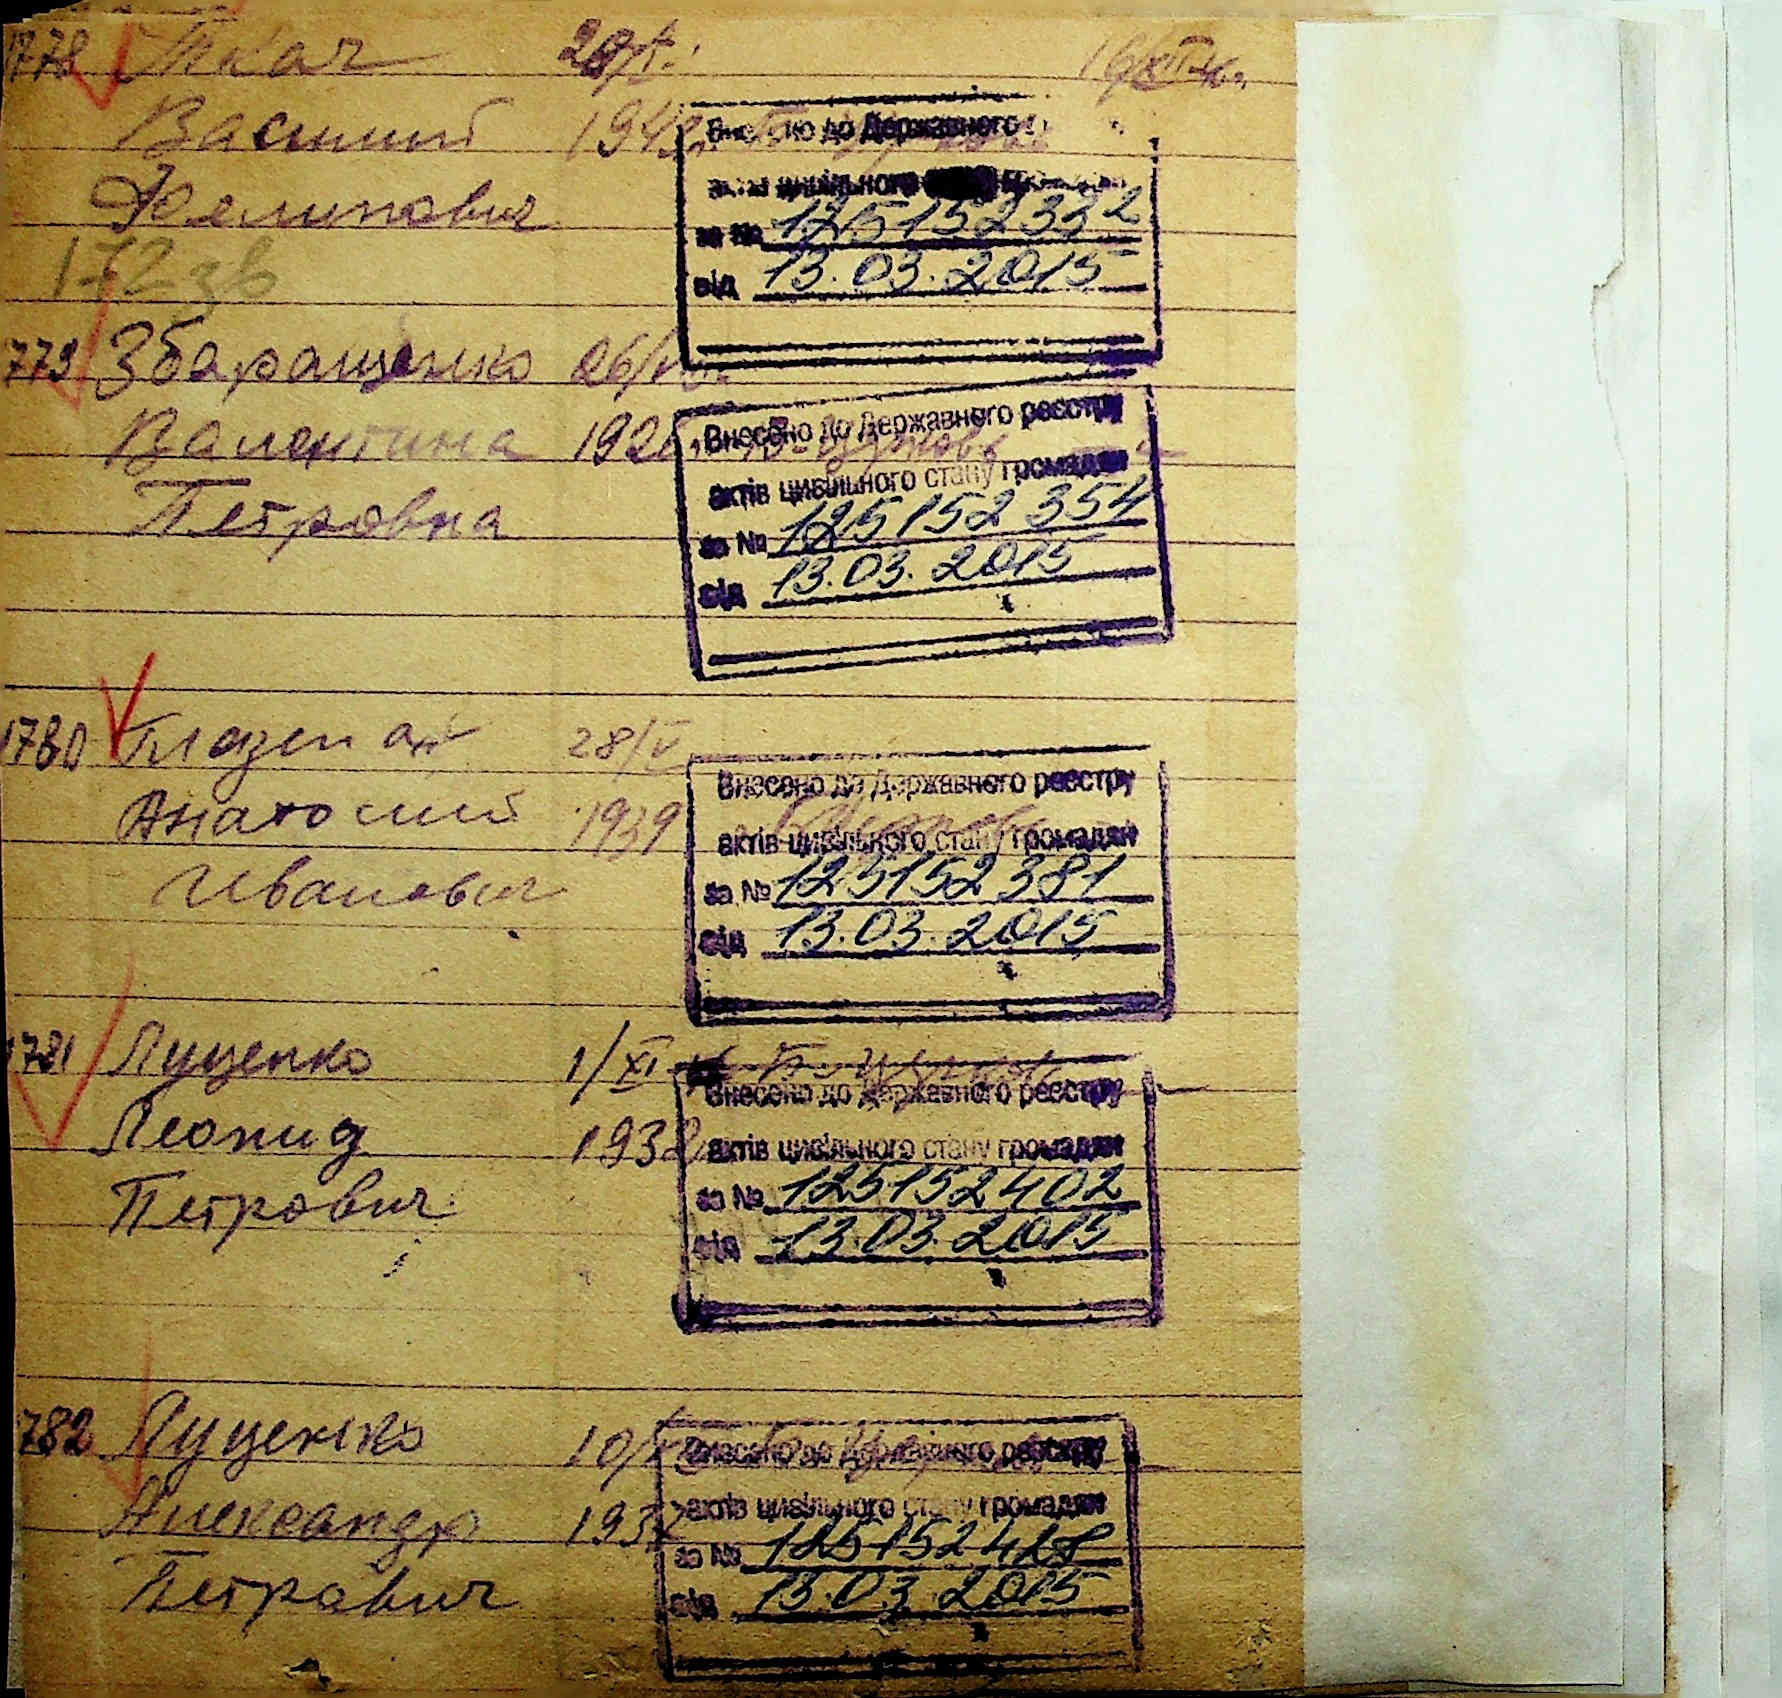 1778 Ткач
Василий
Филипович
172 зв
Внесено до Державного
актів цивільного
за № 125152332
від 13.03.2015
1779 Збаращенко 26/
Валентина 1926
Петровна
Внесено до Державного реєстру
актів цивільного стану громадян
за № 125152354
від 13.03.2015
1780 28/V
Анатолий 1939
Иванович
Внесено до Державного реєстру
актів цивільного стану громадян
за № 125152381
від 13.03.2015
1781 Луценко 1/XI
Леонид 1932
Петрович
Внесено до Державного реєстру
актів цивільного стану громадян
за № 125152402
від 13.03.2015
1782 Луценко 10/
Александр 1937
Петрович
Внесено до Державного реєстру
актів цивільного стану громадян
за № 125152428
від 13.03.2015